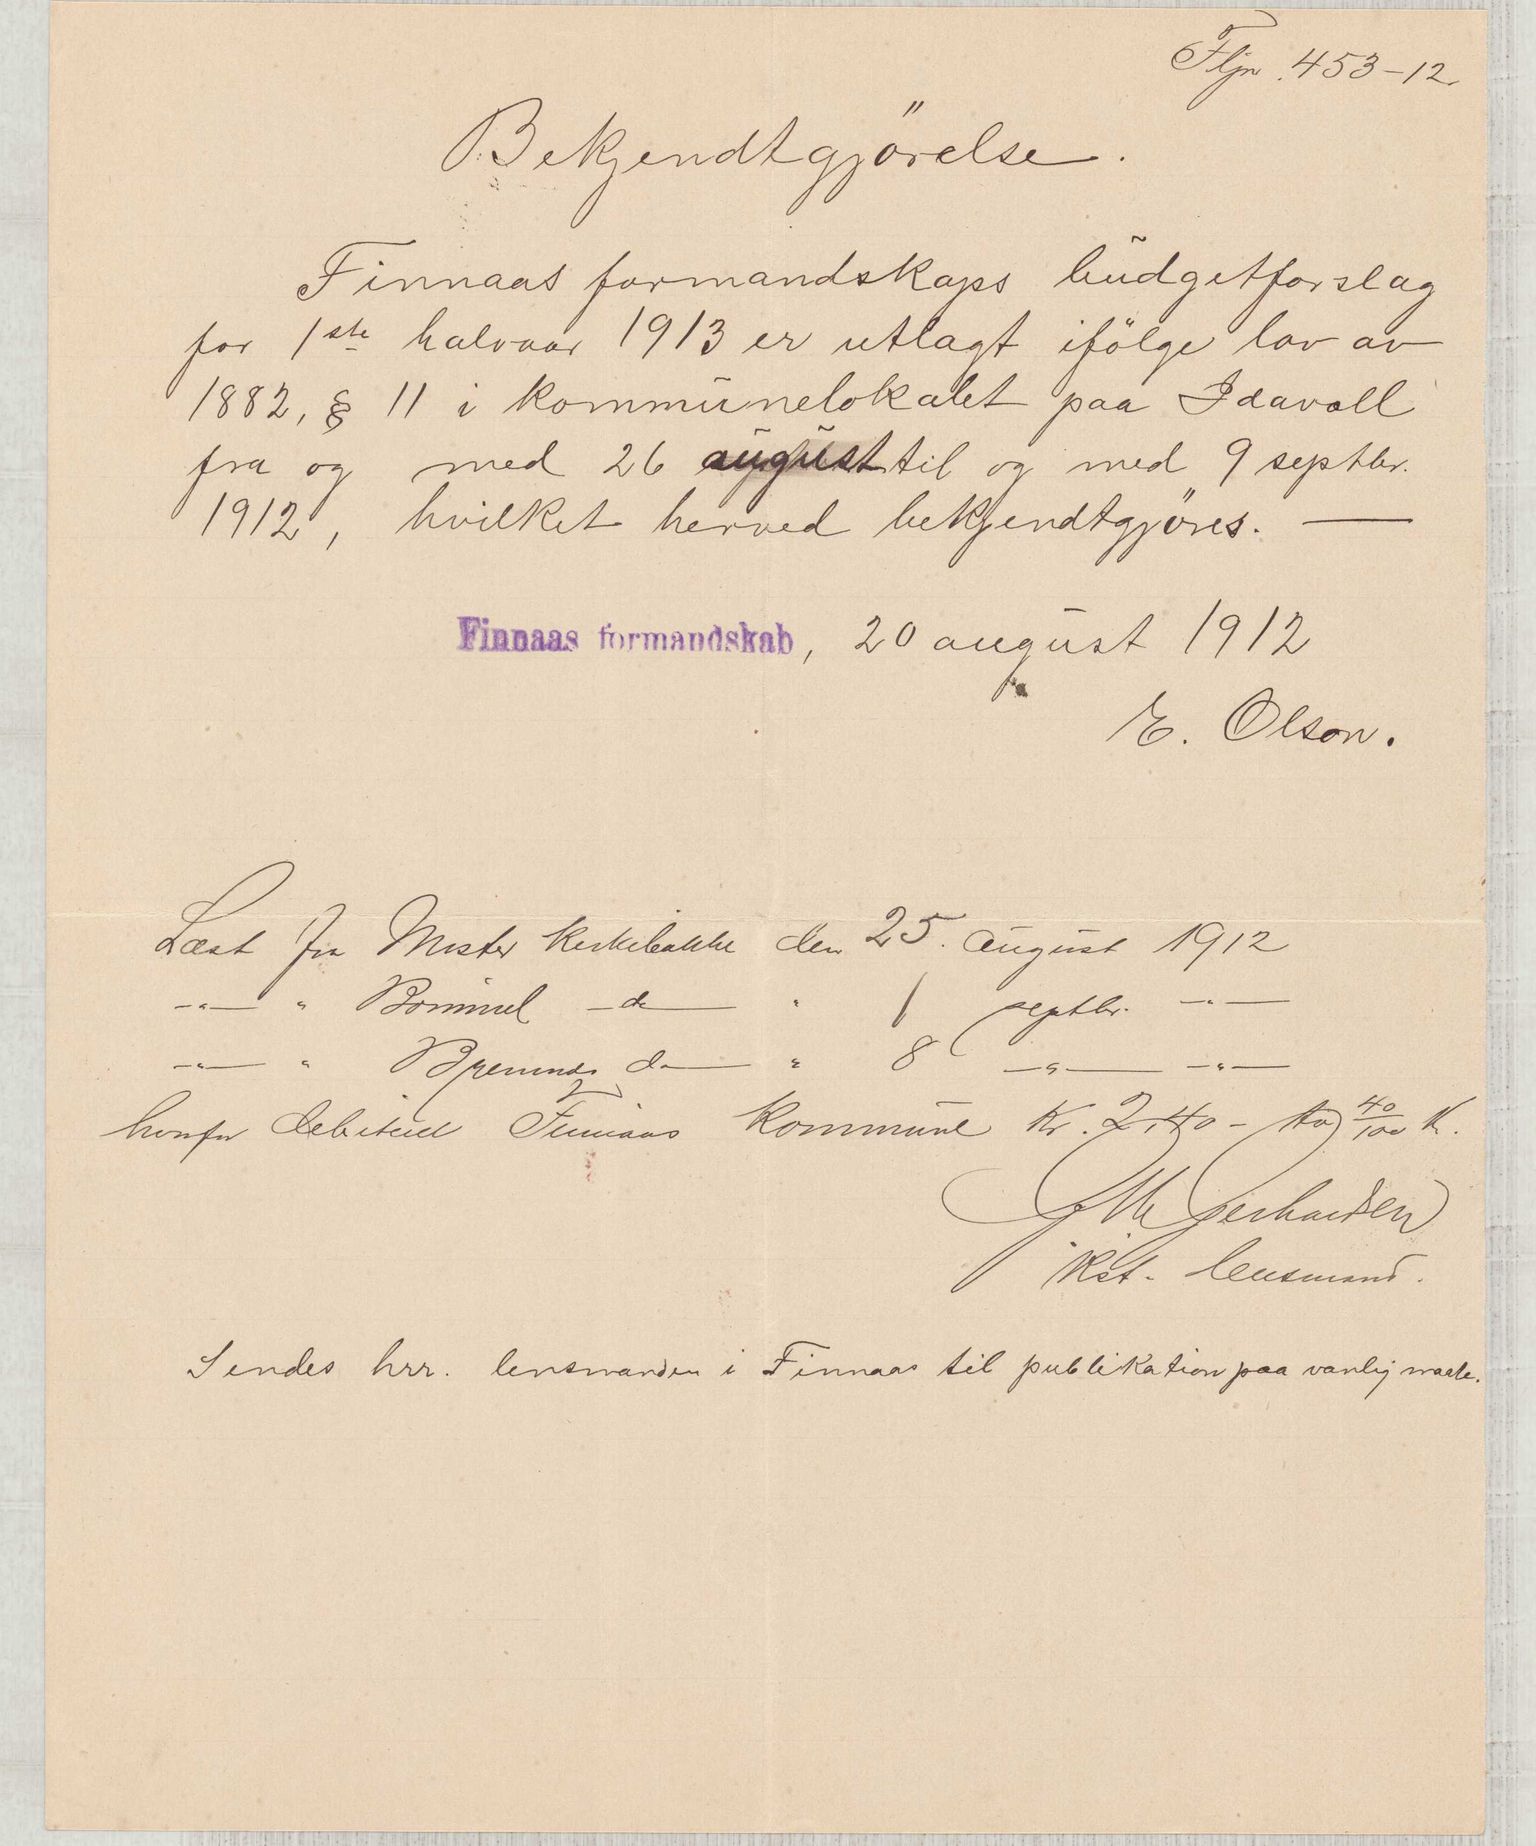 Fljn. 453-12.
Bekjendtgjörelse.
Finnaas formandskaps budgetforslag
for 1ste halvaar 1913 er utlagt ifölge lov av
1882, § 11 i kommunelokalet paa Idavoll
fra og med 26 august til og med 9 septbr.
1912, hvilket herved bekjendtgjöres. —
Finnaas formandskab, 20 august 1912
E. Olson.
Læst fra Moster kirkebakke den 25. august 1912
—"— " Bömmel —do— " 1 septbr. —"—
—"— " Bremnes do— " 8 —"— —"—
hvorfor debiteret Finnaas Kommune Kr. 2,40 - to 40/100 Kr.
Gerhardsen
Kst. lensmand.
Sendes hrr. lensmanden i Finnaas til publikation paa vanlig maate.